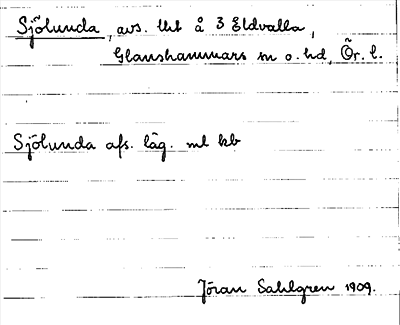 Sjölunda, avs. lht å 3 Eldvalla,
Glanshammars sn o. hd, Ör. l.
Sjölunda afs. läg. ml kb
Jöran Sahlgren 1909.